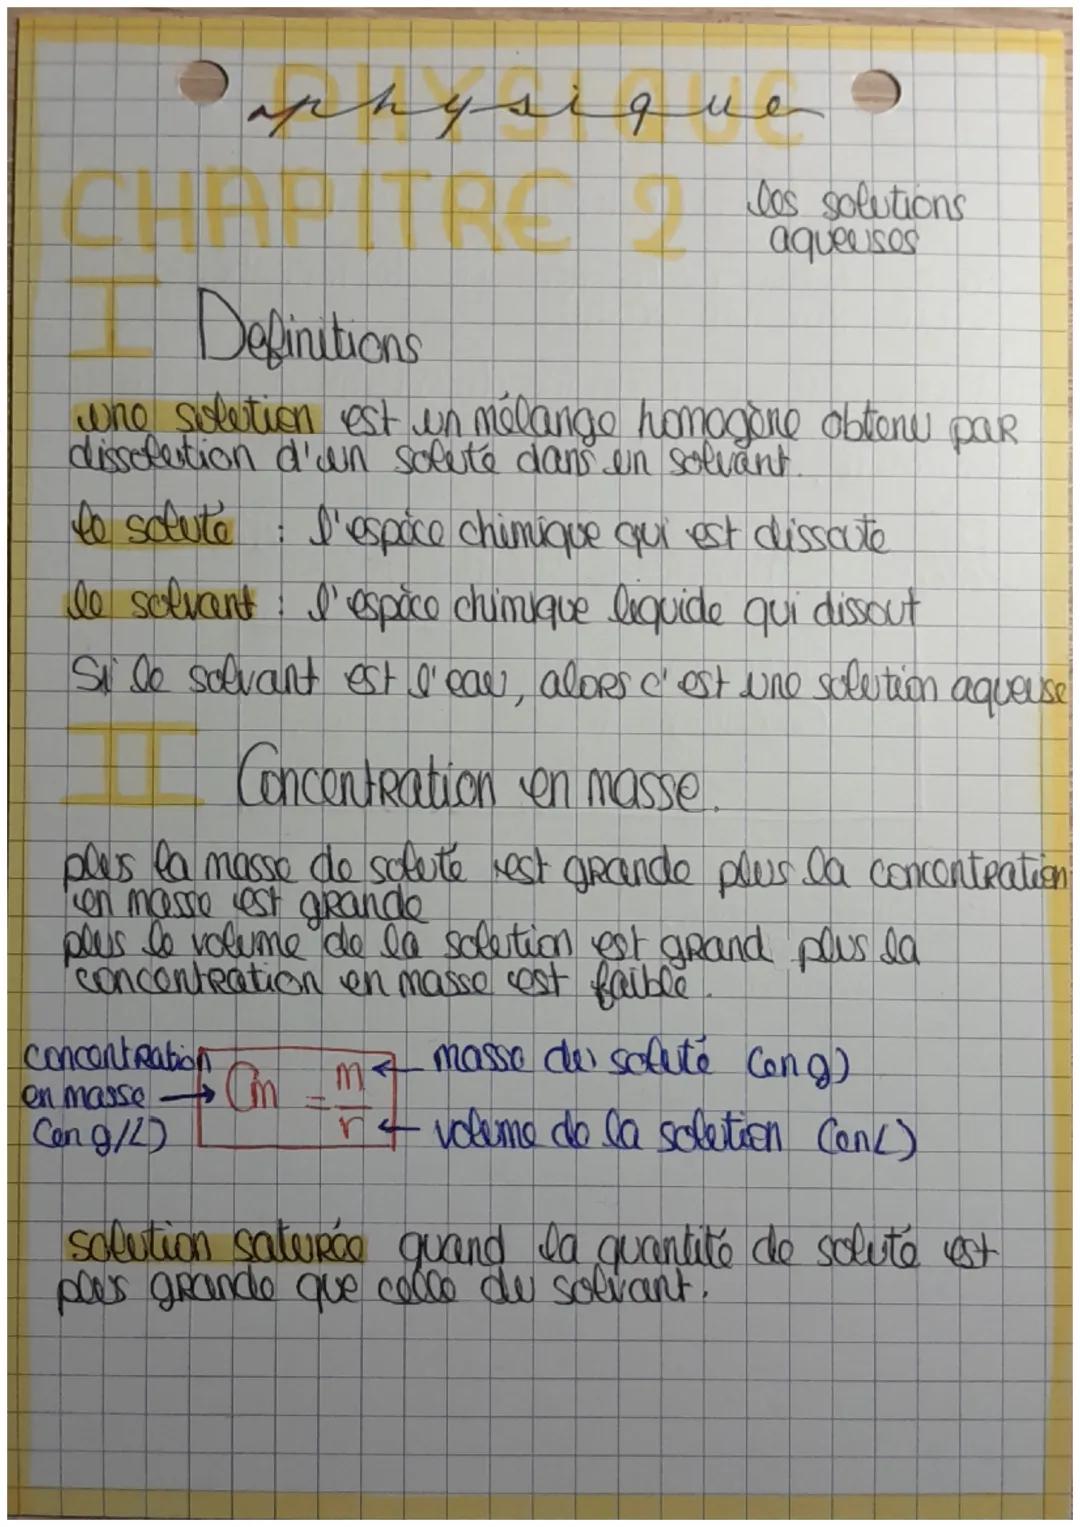 PHYSIQUE
physique
CHAPITRE 2
les solutions
aqueuses
I Definitions
une solution est un mélange homogène obtenu par
dissolution d'un soluté dans un solvant.
le soluté : l'espèce chimique qui est dissoute
le solvant : l'espèce chimique liquide qui dissout
Si le solvant est l'eau, alors c'est une solution aqueuse
II Concentration en masse.
plus la masse de soluté est grande plus la concentration
en masse est grande
plus le volume de la solution est grand plus la
concentration en masse est faible.
concentration
en masse →
(en g/L)
Cm = m/v
← masse du soluté (en g)
← volume de la solution (en L)
solution saturée quand la quantité de soluté est
plus grande que celle du solvant.